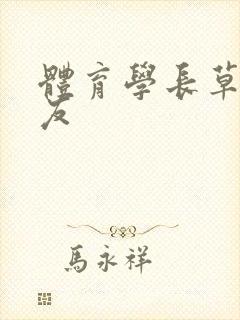 體育學長草
友
馬永祥